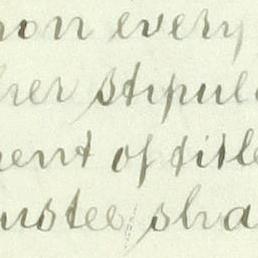 ron every
her stipul
ment of title
ustee, sha